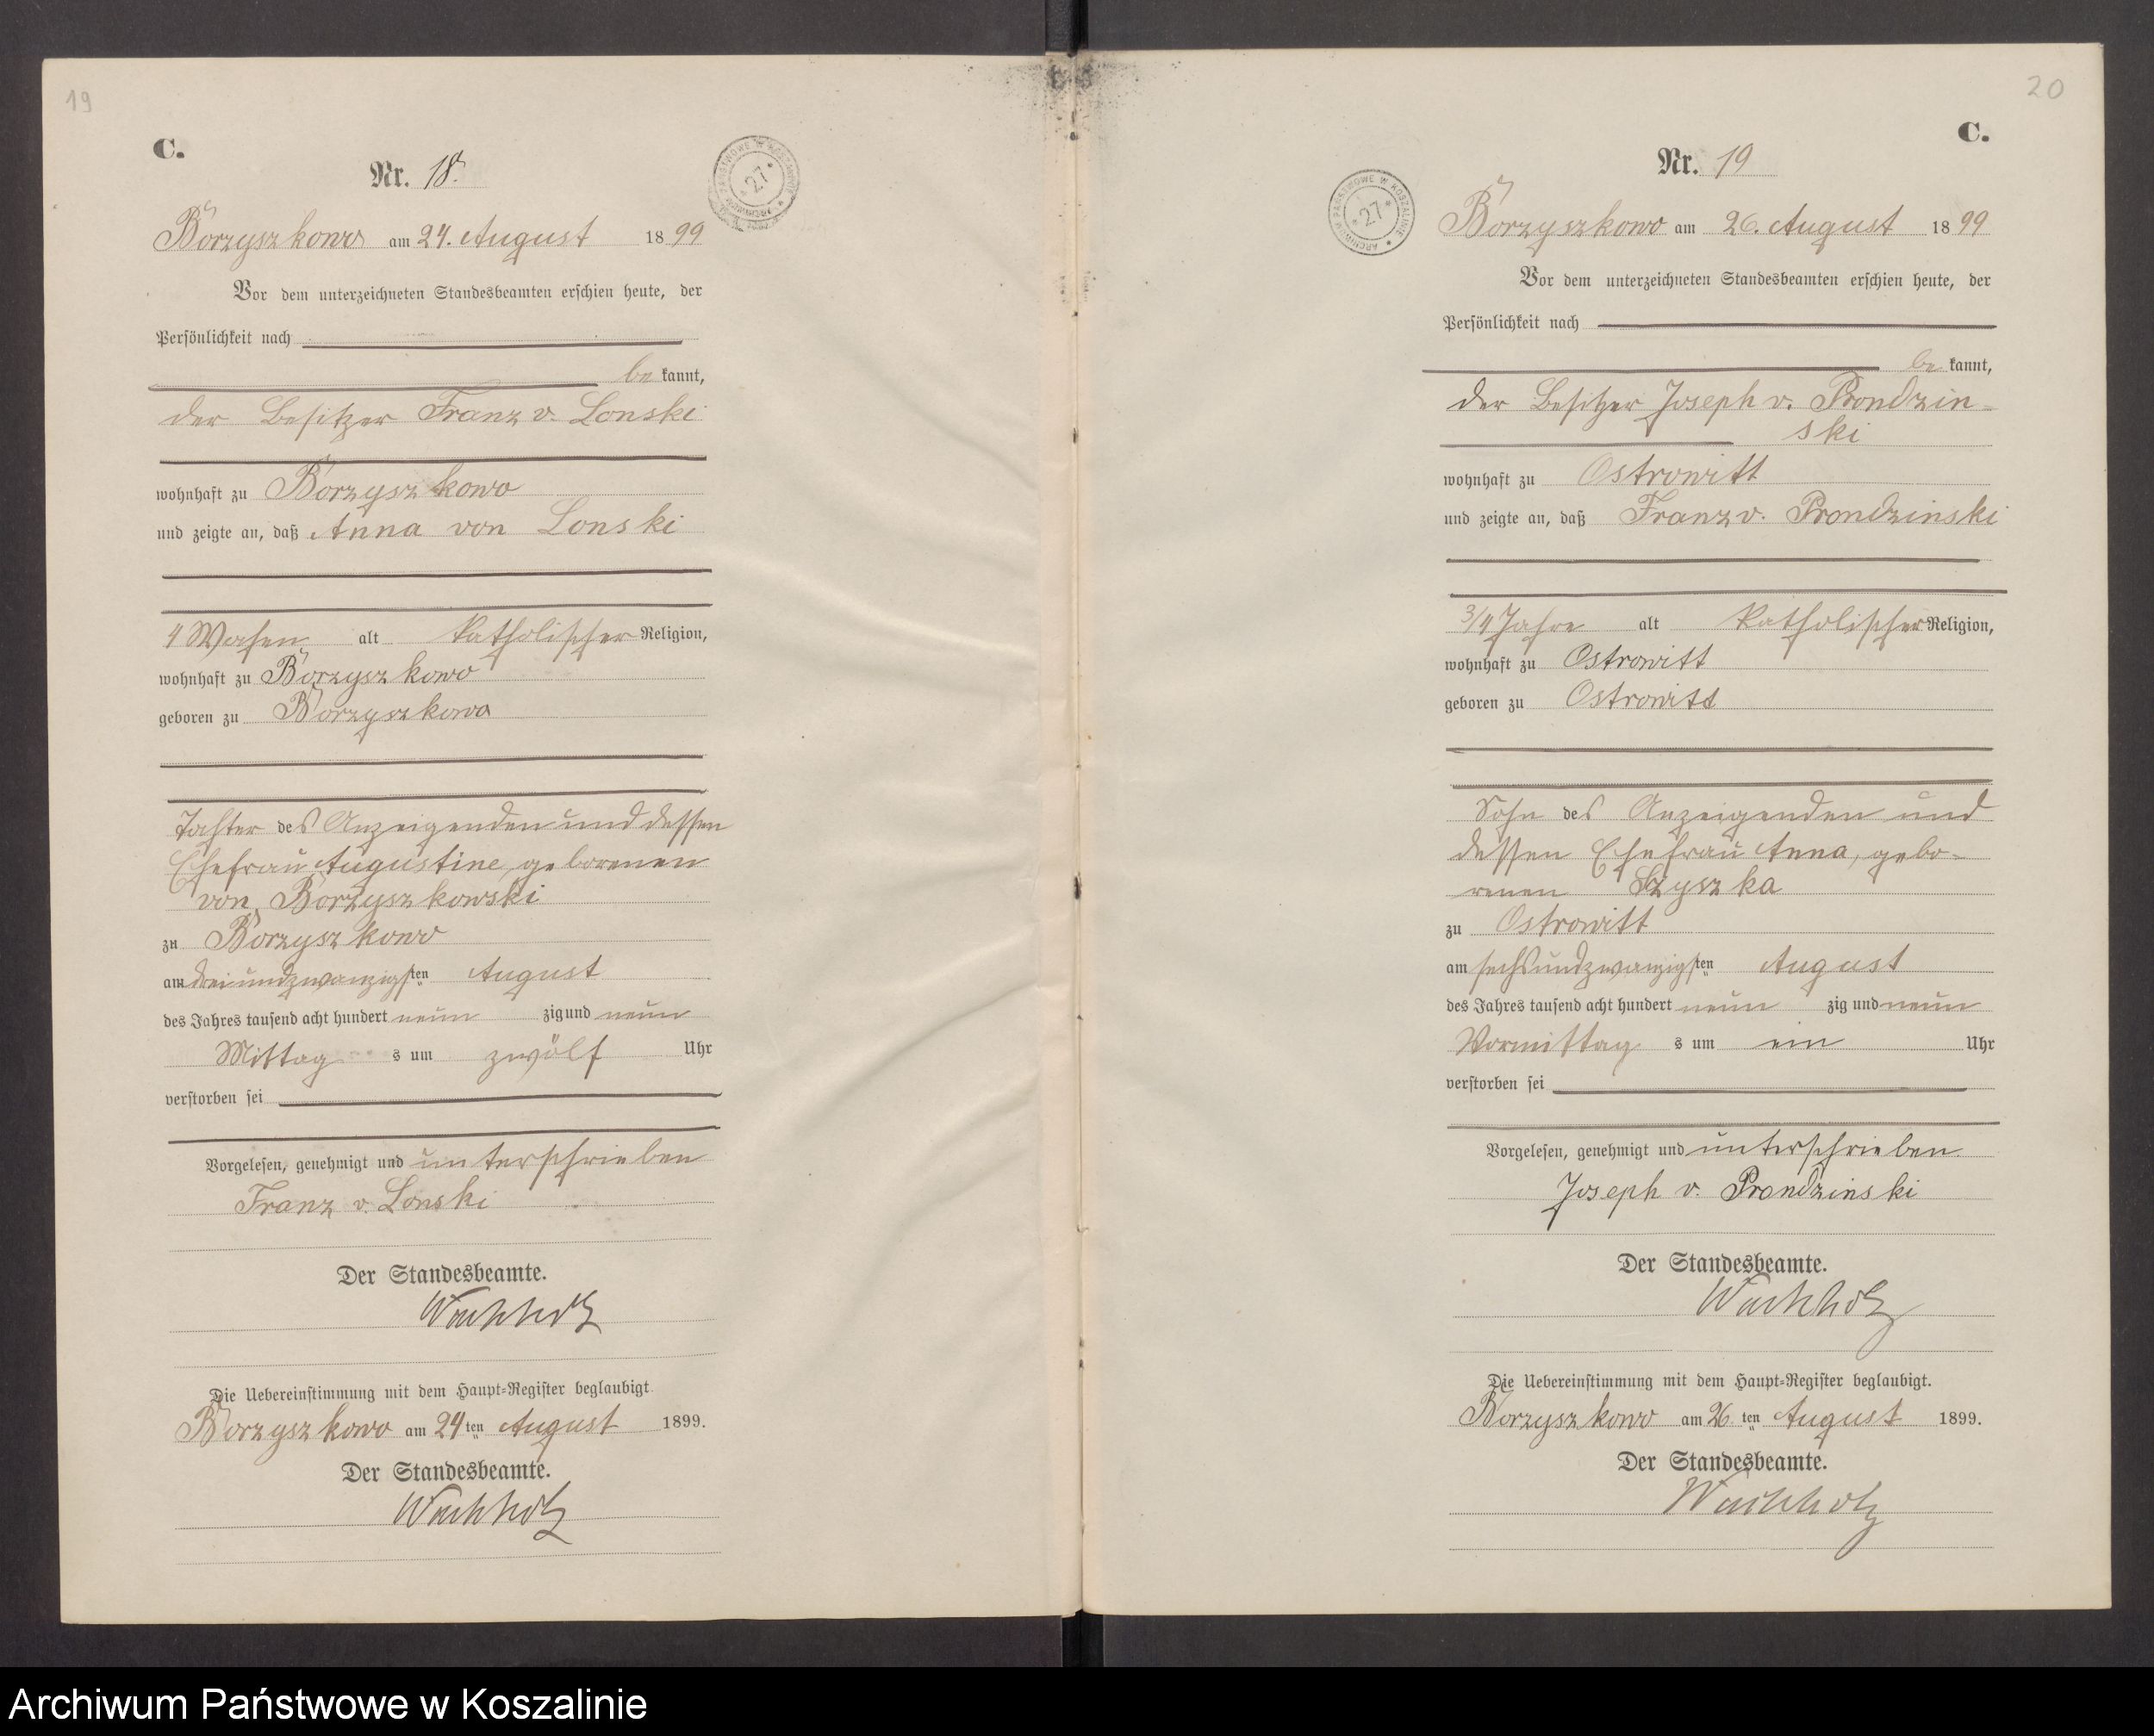 19
C.
Nr. 18.
ARCHIWUM PAŃSTWOWE W KOSZALINIE
* 27 *
Borzyszkowo am 24. August 1899
Vor dem unterzeichneten Standesbeamten erschien heute, der
Persönlichkeit nach
be kannt,
der Besitzer Franz v. Lonski
wohnhaft zu Borzyszkowo
und zeigte an, daß Anna von Lonski
4 Wochen alt katholischer Religion,
wohnhaft zu Borzyszkowo
geboren zu Borzyszkowo
Tochter des Anzeigenden und dessen
Ehefrau Augustine, geborenen
von Borzyszkowski
zu Borzyszkowo
am dreiundzwanzigsten August
des Jahres tausend acht hundert neun zig und neun
Mittag s um zwölf Uhr
verstorben sei
Vorgelesen, genehmigt und unterschrieben
Franz v. Lonski
Der Standesbeamte.
Wachholz
Die Uebereinstimmung mit dem Haupt-Register beglaubigt
Borzyszkowo am 24 ten August 1899.
Der Standesbeamte.
Wachholz
20
C.
Nr. 19
ARCHIWUM PAŃSTWOWE W KOSZALINIE
* 27 *
Borzyszkowo am 26. August 1899
Vor dem unterzeichneten Standesbeamten erschien heute, der
Persönlichkeit nach
be kannt,
der Besitzer Joseph v. Prondzin-
ski
wohnhaft zu Ostrowitt
und zeigte an, daß Franz v. Prondzinski
3/4 Jahre alt katholischer Religion,
wohnhaft zu Ostrowitt
geboren zu Ostrowitt
Sohn des Anzeigenden und
dessen Ehefrau Anna, gebo-
renen Szyszka
zu Ostrowitt
am sechsundzwanzigsten August
des Jahres tausend acht hundert neun zig und neun
Vormittag s um ein Uhr
verstorben sei
Vorgelesen, genehmigt und unterschrieben
Joseph v. Prondzinski
Der Standesbeamte.
Wachholz
Die Uebereinstimmung mit dem Haupt-Register beglaubigt.
Borzyszkowo am 26 ten August 1899.
Der Standesbeamte.
Wachholz
Archiwum Państwowe w Koszalinie